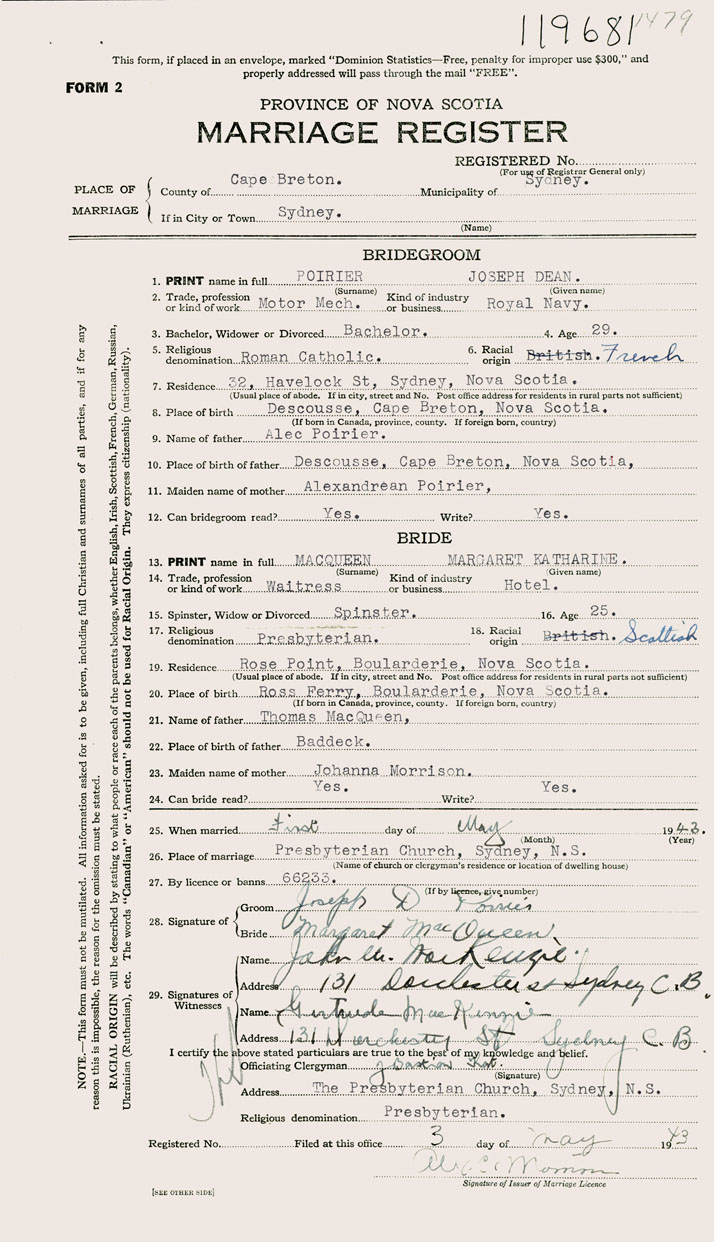 119681 1479
This form, if placed in an envelope, marked "Dominion Statistics—Free, penalty for improper use $300," and
properly addressed will pass through the mail "FREE".
FORM 2
PROVINCE OF NOVA SCOTIA
MARRIAGE REGISTER
REGISTERED No.
(For use of Registrar General only)
PLACE OF MARRIAGE
County of Cape Breton. Municipality of Sydney.
If in City or Town Sydney.
(Name)
BRIDEGROOM
1. PRINT name in full POIRIER JOSEPH DEAN.
(Surname) (Given name)
2. Trade, profession or kind of work Motor Mech. Kind of industry or business Royal Navy.
3. Bachelor, Widower or Divorced Bachelor. 4. Age 29.
5. Religious denomination Roman Catholic. 6. Racial origin British. French
7. Residence 32, Havelock St, Sydney, Nova Scotia.
(Usual place of abode. If in city, street and No. Post office address for residents in rural parts not sufficient)
8. Place of birth Descousse, Cape Breton, Nova Scotia.
(If born in Canada, province, county. If foreign born, country)
9. Name of father Alec Poirier.
10. Place of birth of father Descousse, Cape Breton, Nova Scotia,
11. Maiden name of mother Alexandrean Poirier,
12. Can bridegroom read? Yes. Write? Yes.
BRIDE
13. PRINT name in full MACQUEEN MARGARET KATHARINE.
(Surname) (Given name)
14. Trade, profession or kind of work Waitress Kind of industry or business Hotel.
15. Spinster, Widow or Divorced Spinster. 16. Age 25.
17. Religious denomination Presbyterian. 18. Racial origin British. Scottish
19. Residence Rose Point, Boularderie, Nova Scotia.
(Usual place of abode. If in city, street and No. Post office address for residents in rural parts not sufficient)
20. Place of birth Ross Ferry, Boularderie, Nova Scotia.
(If born in Canada, province, county. If foreign born, country)
21. Name of father Thomas MacQueen,
22. Place of birth of father Baddeck.
23. Maiden name of mother Johanna Morrison.
24. Can bride read? Yes. Write? Yes.
25. When married First day of May 1943.
(Month) (Year)
26. Place of marriage Presbyterian Church, Sydney, N.S.
(Name of church or clergyman's residence or location of dwelling house)
27. By licence or banns 66233.
(If by licence, give number)
28. Signature of
Groom Joseph D Poirier
Bride Margaret MacQueen
29. Signatures of Witnesses
Name John M. MacKenzie.
Address 131 Dorchester st Sydney C.B.
Name Gertrude MacKenzie
Address 131 Dorchester St Sydney C.B
I certify the above stated particulars are true to the best of my knowledge and belief.
Officiating Clergyman
(Signature)
Address The Presbyterian Church, Sydney, N.S.
Religious denomination Presbyterian.
Registered No. Filed at this office 3 day of May 1943
Signature of Issuer of Marriage Licence
[SEE OTHER SIDE]
NOTE.—This form must not be mutilated. All information asked for is to be given, including full Christian and surnames of all parties, and if for any
reason this is impossible, the reason for the omission must be stated.
RACIAL ORIGIN will be described by stating to what people or race each of the parents belongs, whether English, Irish, Scottish, French, German, Russian,
Ukrainian (Ruthenian), etc. The words "Canadian" or "American" should not be used for Racial Origin. They express citizenship (nationality).